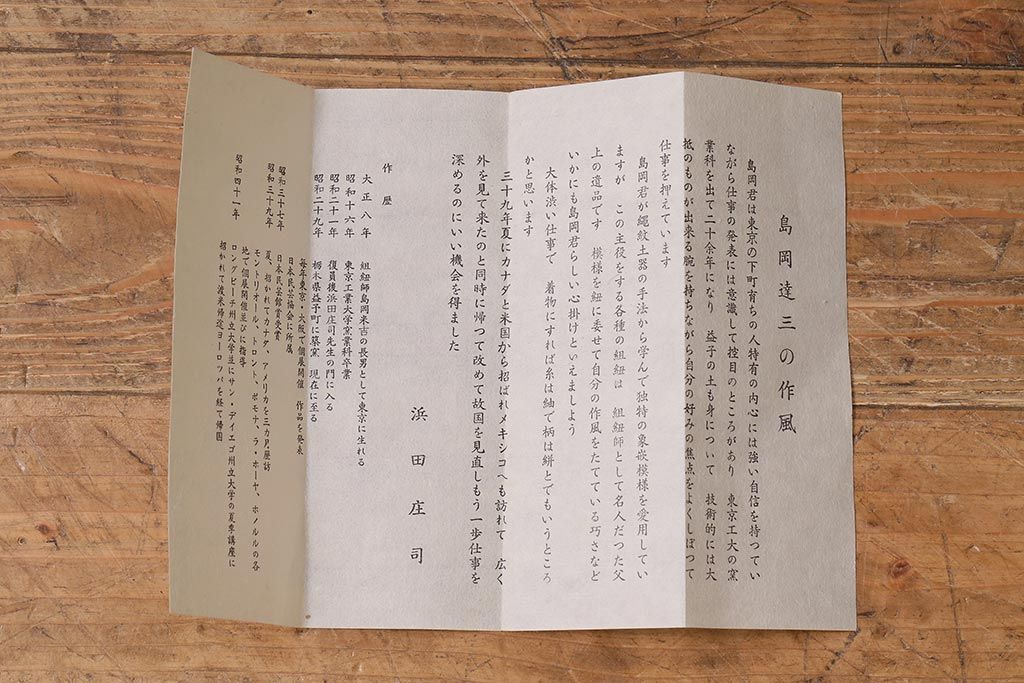 島岡達三の作風
島岡君は東京の下町育ちの人特有の内心には強い自信を持つてい
ながら仕事の発表には意識して控目のところがあり 東京工大の窯
業科を出て二十余年になり 益子の土も身について 技術的には大
抵のものが出来る腕を持ちながら自分の好みの焦点をよくしぼつて
仕事を押えています
島岡君が縄紋土器の手法から学んで独特の象嵌模様を愛用してい
ますが この主役をする各種の組紐は 組紐師として名人だつた父
上の遺品です 模様を紐に委せて自分の作風をたてている巧さなど
いかにも島岡君らしい心掛けといえましよう
大体渋い仕事で 着物にすれば糸は紬で柄は絣とでもいうところ
かと思います
三十九年夏にカナダと米国から招ばれメキシコへも訪れて 広く
外を見て来たのと同時に帰つて改めて故国を見直しもう一歩仕事を
深めるのにいい機会を得ました
浜田庄司
作歴
大正八年 組紐師島岡米吉の長男として東京に生れる
昭和十六年 東京工業大学窯業科卒業
昭和二十一年 復員後浜田庄司先生の門に入る
昭和二十九年 栃木県益子町に築窯 現在に至る
毎年東京・大阪で個展開催 作品を発表
日本民芸協会に所属
昭和三十七年 日本民芸館賞受賞
昭和三十九年 夏、招かれてカナダ、アメリカを三カ月歴訪
モントリオール、トロント、ポモナ、ラ・ホーヤ、ホノルルの各
地で個展開催並びに指導
昭和四十一年 ロングビーチ州立大学並にサン・デイエゴ州立大学の夏季講座に
招かれて渡米帰途ヨーロツパを経て帰国